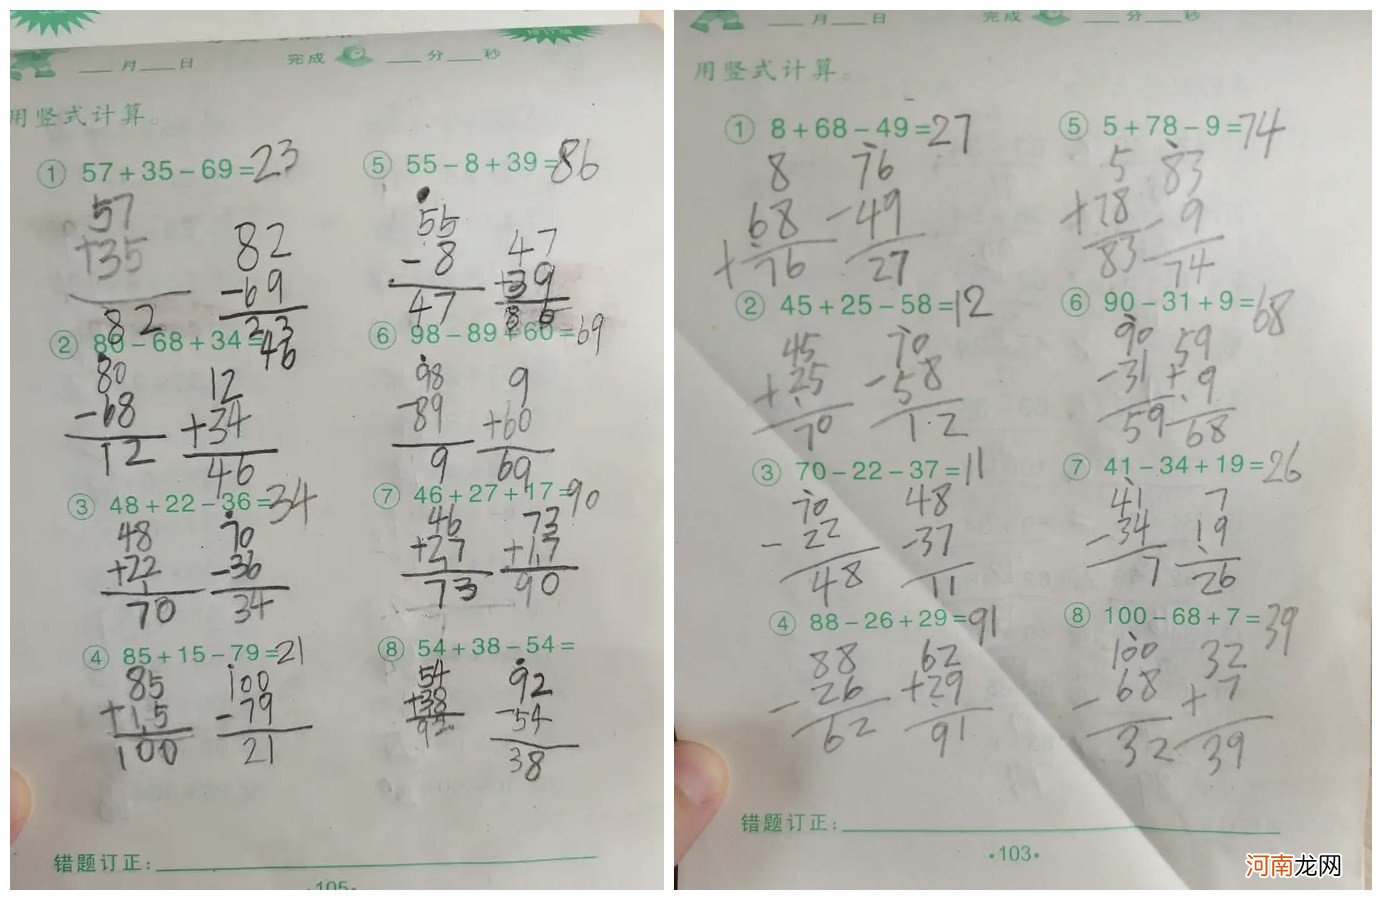 ___月___日 完成 ___分___秒
用竖式计算。
① 57+35-69=23
57
+35
82
82
-69
23
② 80-68+34=46
80
-68
12
12
+34
46
③ 48+22-36=34
48
+22
1
70
70
-36
34
④ 85+15-79=21
85
+15
100
100
-79
21
⑤ 55-8+39=86
55
-8
47
47
+39
86
⑥ 98-89+60=69
98
-89
9
9
+60
69
⑦ 46+27+17=90
46
+27
73
73
+17
90
⑧ 54+38-54=
54
+38
92
92
-54
38
错题订正:
·105·
___月___日 完成 ___分___秒
用竖式计算。
① 8+68-49=27
8
68
+
76
76
-49
27
② 45+25-58=12
45
+25
70
70
-58
12
③ 70-22-37=11
70
-22
48
48
-37
11
④ 88-26+29=91
88
-26
62
62
+29
91
⑤ 5+78-9=74
5
+78
83
83
-9
74
⑥ 90-31+9=68
90
-31
59
59
+9
68
⑦ 41-34+19=26
41
-34
7
7
19
26
⑧ 100-68+7=39
100
-68
32
32
+7
39
错题订正:
·103·
河南龙网